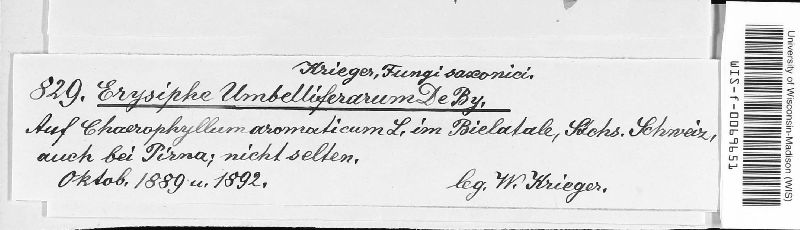 Krieger, Fungi saxonici.
829. Erysiphe Umbelliferarum De By.
Auf Chaerophyllum aromaticum L. im Bielatale, Sächs. Schweiz,
auch bei Pirna; nicht selten.
Oktob. 1889 u. 1892. leg. W. Krieger.
University of Wisconsin-Madison (WIS)
WIS-f-0069651